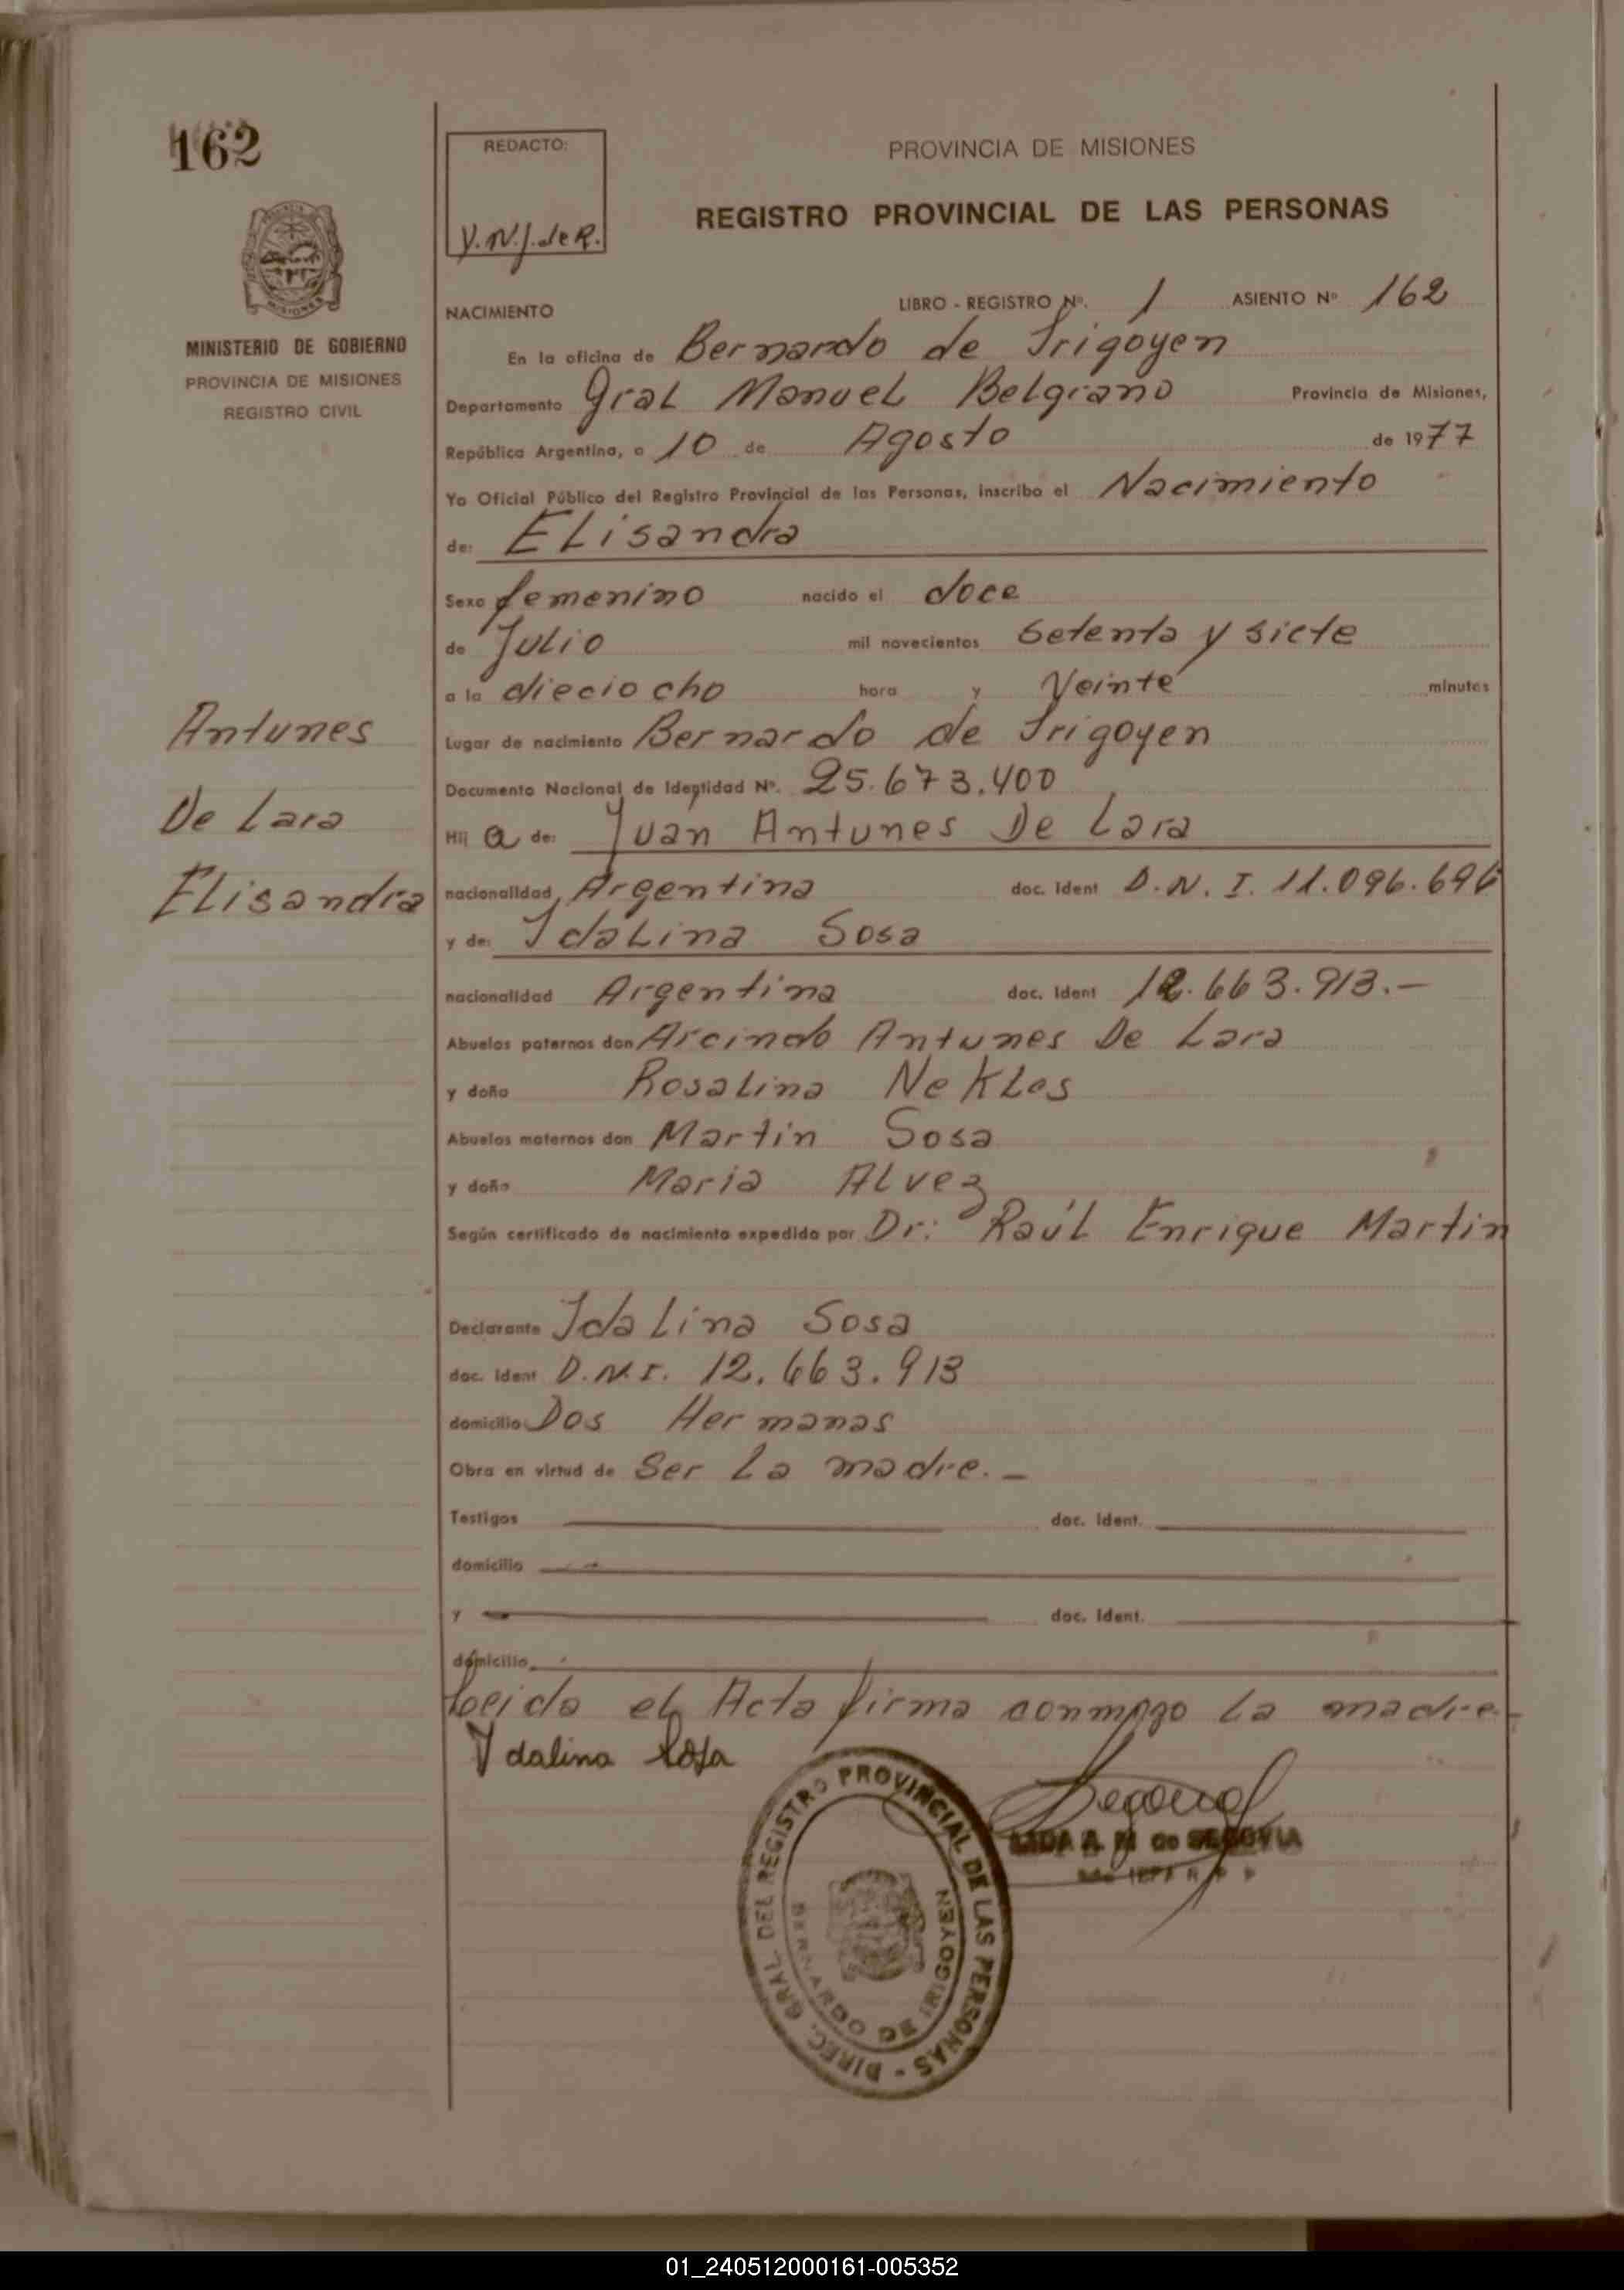 162
REDACTO:
Y.N.J. de R.
PROVINCIA DE MISIONES
REGISTRO PROVINCIAL DE LAS PERSONAS
MINISTERIO DE GOBIERNO
PROVINCIA DE MISIONES
REGISTRO CIVIL
NACIMIENTO LIBRO - REGISTRO Nº. 1 ASIENTO Nº 162
En la oficina de Bernardo de Irigoyen
Departamento Gral Manuel Belgrano Provincia de Misiones,
República Argentina, a 10 de Agosto de 1977
Yo Oficial Público del Registro Provincial de las Personas, inscribo el Nacimiento
de: Elisandra
Sexo femenino nacido el doce
de Julio mil novecientos setenta y siete
a la dieciocho hora y Veinte minutos
Lugar de nacimiento Bernardo de Irigoyen
Documento Nacional de Identidad Nº. 25.673.400
Antunes
De Lara
Elisandra
Hij a de: Juan Antunes De Lara
nacionalidad Argentina doc. Ident D.N.I. 11.096.696
y de: Idalina Sosa
nacionalidad Argentina doc. Ident 12.663.913.-
Abuelos paternos don Arcindo Antunes De Lara
y doña Rosalina Neklos
Abuelos maternos don Martin Sosa
y doña Maria Alvez
Según certificado de nacimiento expedido por Dr: Raúl Enrique Martin
Declarante Idalina Sosa
doc. Ident D.N.I. 12.663.913
domicilio Dos Hermanas
Obra en virtud de Ser La madre.-
Testigos doc. Ident.
domicilio
y doc. Ident.
domicilio
Leida el Acta firma conmigo La madre.-
Ydalina Sosa
LIDA A. M de SEGOVIA
DIREC. GRAL DEL REGISTRO PROVINCIAL DE LAS PERSONAS -
BERNARDO DE IRIGOYEN
01_240512000161-005352